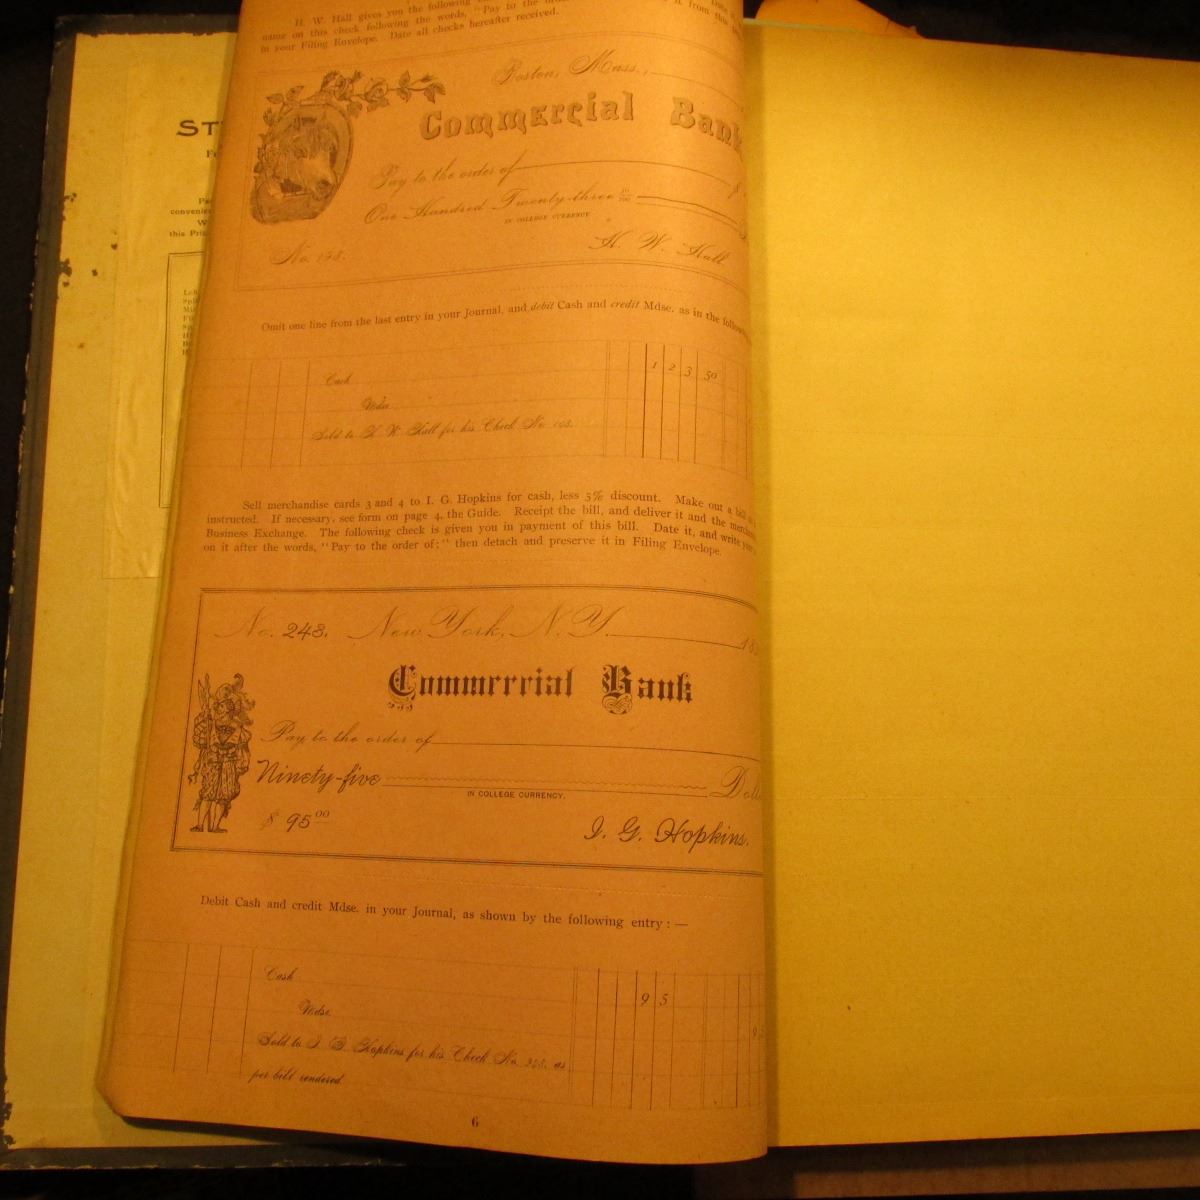 H. W. Hall gives you the following
name on this check following the words, "Pay to the
in your Filing Envelope. Date all checks hereafter received.
ST
Boston, Mass.,
Commercial Bank
Pay to the order of $
One Hundred Twenty-three 50/100
IN COLLEGE CURRENCY
H. W. Hall
No. 158.
Omit one line from the last entry in your Journal, and debit Cash and credit Mdse. as in the following
Cash 1 2 3 50
Mdse
Sold to H. W. Hall for his Check No. 158.
Sell merchandise cards 3 and 4 to I. G. Hopkins for cash, less 5% discount. Make out a bill as
instructed. If necessary, see form on page 4, the Guide. Receipt the bill, and deliver it and the merchan
Business Exchange. The following check is given you in payment of this bill. Date it, and write your
on it after the words, "Pay to the order of;" then detach and preserve it in Filing Envelope.
No. 248. New York, N.Y. 18
Commercial Bank
Pay to the order of
Ninety-five Doll
IN COLLEGE CURRENCY.
$ 95 00
I. G. Hopkins.
Debit Cash and credit Mdse. in your Journal, as shown by the following entry:—
Cash 9 5
Mdse.
Sold to I. G. Hopkins for his Check No. 248, as
per bill rendered
6